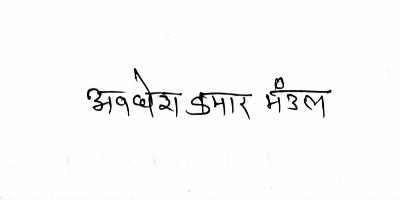 अवधेश कुमार मंडल